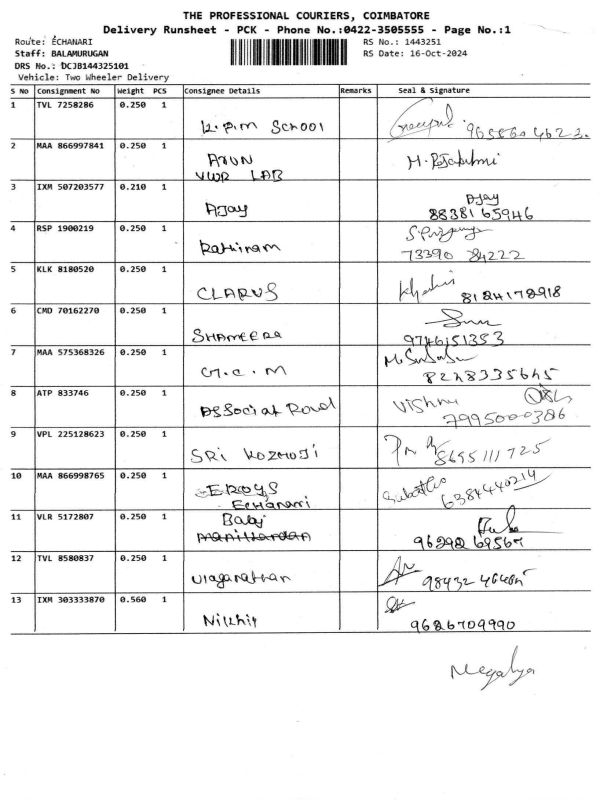 THE PROFESSIONAL COURIERS, COIMBATORE
Delivery Runsheet - PCK - Phone No.:0422-3505555 - Page No.:1
Route: ECHANARI
RS No.: 1443251
Staff: BALAMURUGAN
RS Date: 16-Oct-2024
DRS No.: DCJB144325101
Vehicle: Two Wheeler Delivery
S No Consignment No Weight PCS Consignee Details Remarks Seal & Signature
1 TVL 7258286 0.250 1
K.P.M School
2 MAA 866997841 0.250 1
ARUN
VWR LAB
3 IXM 507203577 0.210 1
AJay AJay
8838165946
4 RSP 1900219 0.250 1
Rathinam
73390 84222
5 KLK 8180520 0.250 1
CLARUS 8124178918
6 CMD 70162270 0.250 1
SHAMEERA 9746151353
7 MAA 575368326 0.250 1
G.C.M 8248335645
8 ATP 833746 0.250 1
Vishnu
7995000386
9 VPL 225128623 0.250 1
SRI KOZMOJI 8695111725
10 MAA 866998765 0.250 1
EROYS
Echanari 6384440214
11 VLR 5172807 0.250 1
Balaj
manikandan
12 TVL 8580837 0.250 1
13 IXM 303333870 0.560 1
Nikhit 9626709990
Megalya